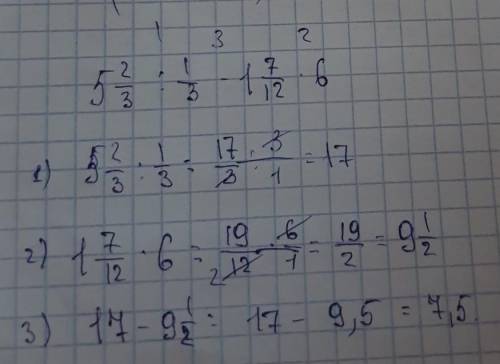 1 3 2
5 2/3 : 1/3 - 1 7/12 · 6
1) 5 2/3 : 1/3 = 17/3 · 3/1 = 17
2) 1 7/12 · 6 = 19/12 · 6/1 = 19/2 = 9 1/2
2
3) 17 - 9 1/2 = 17 - 9,5 = 7,5